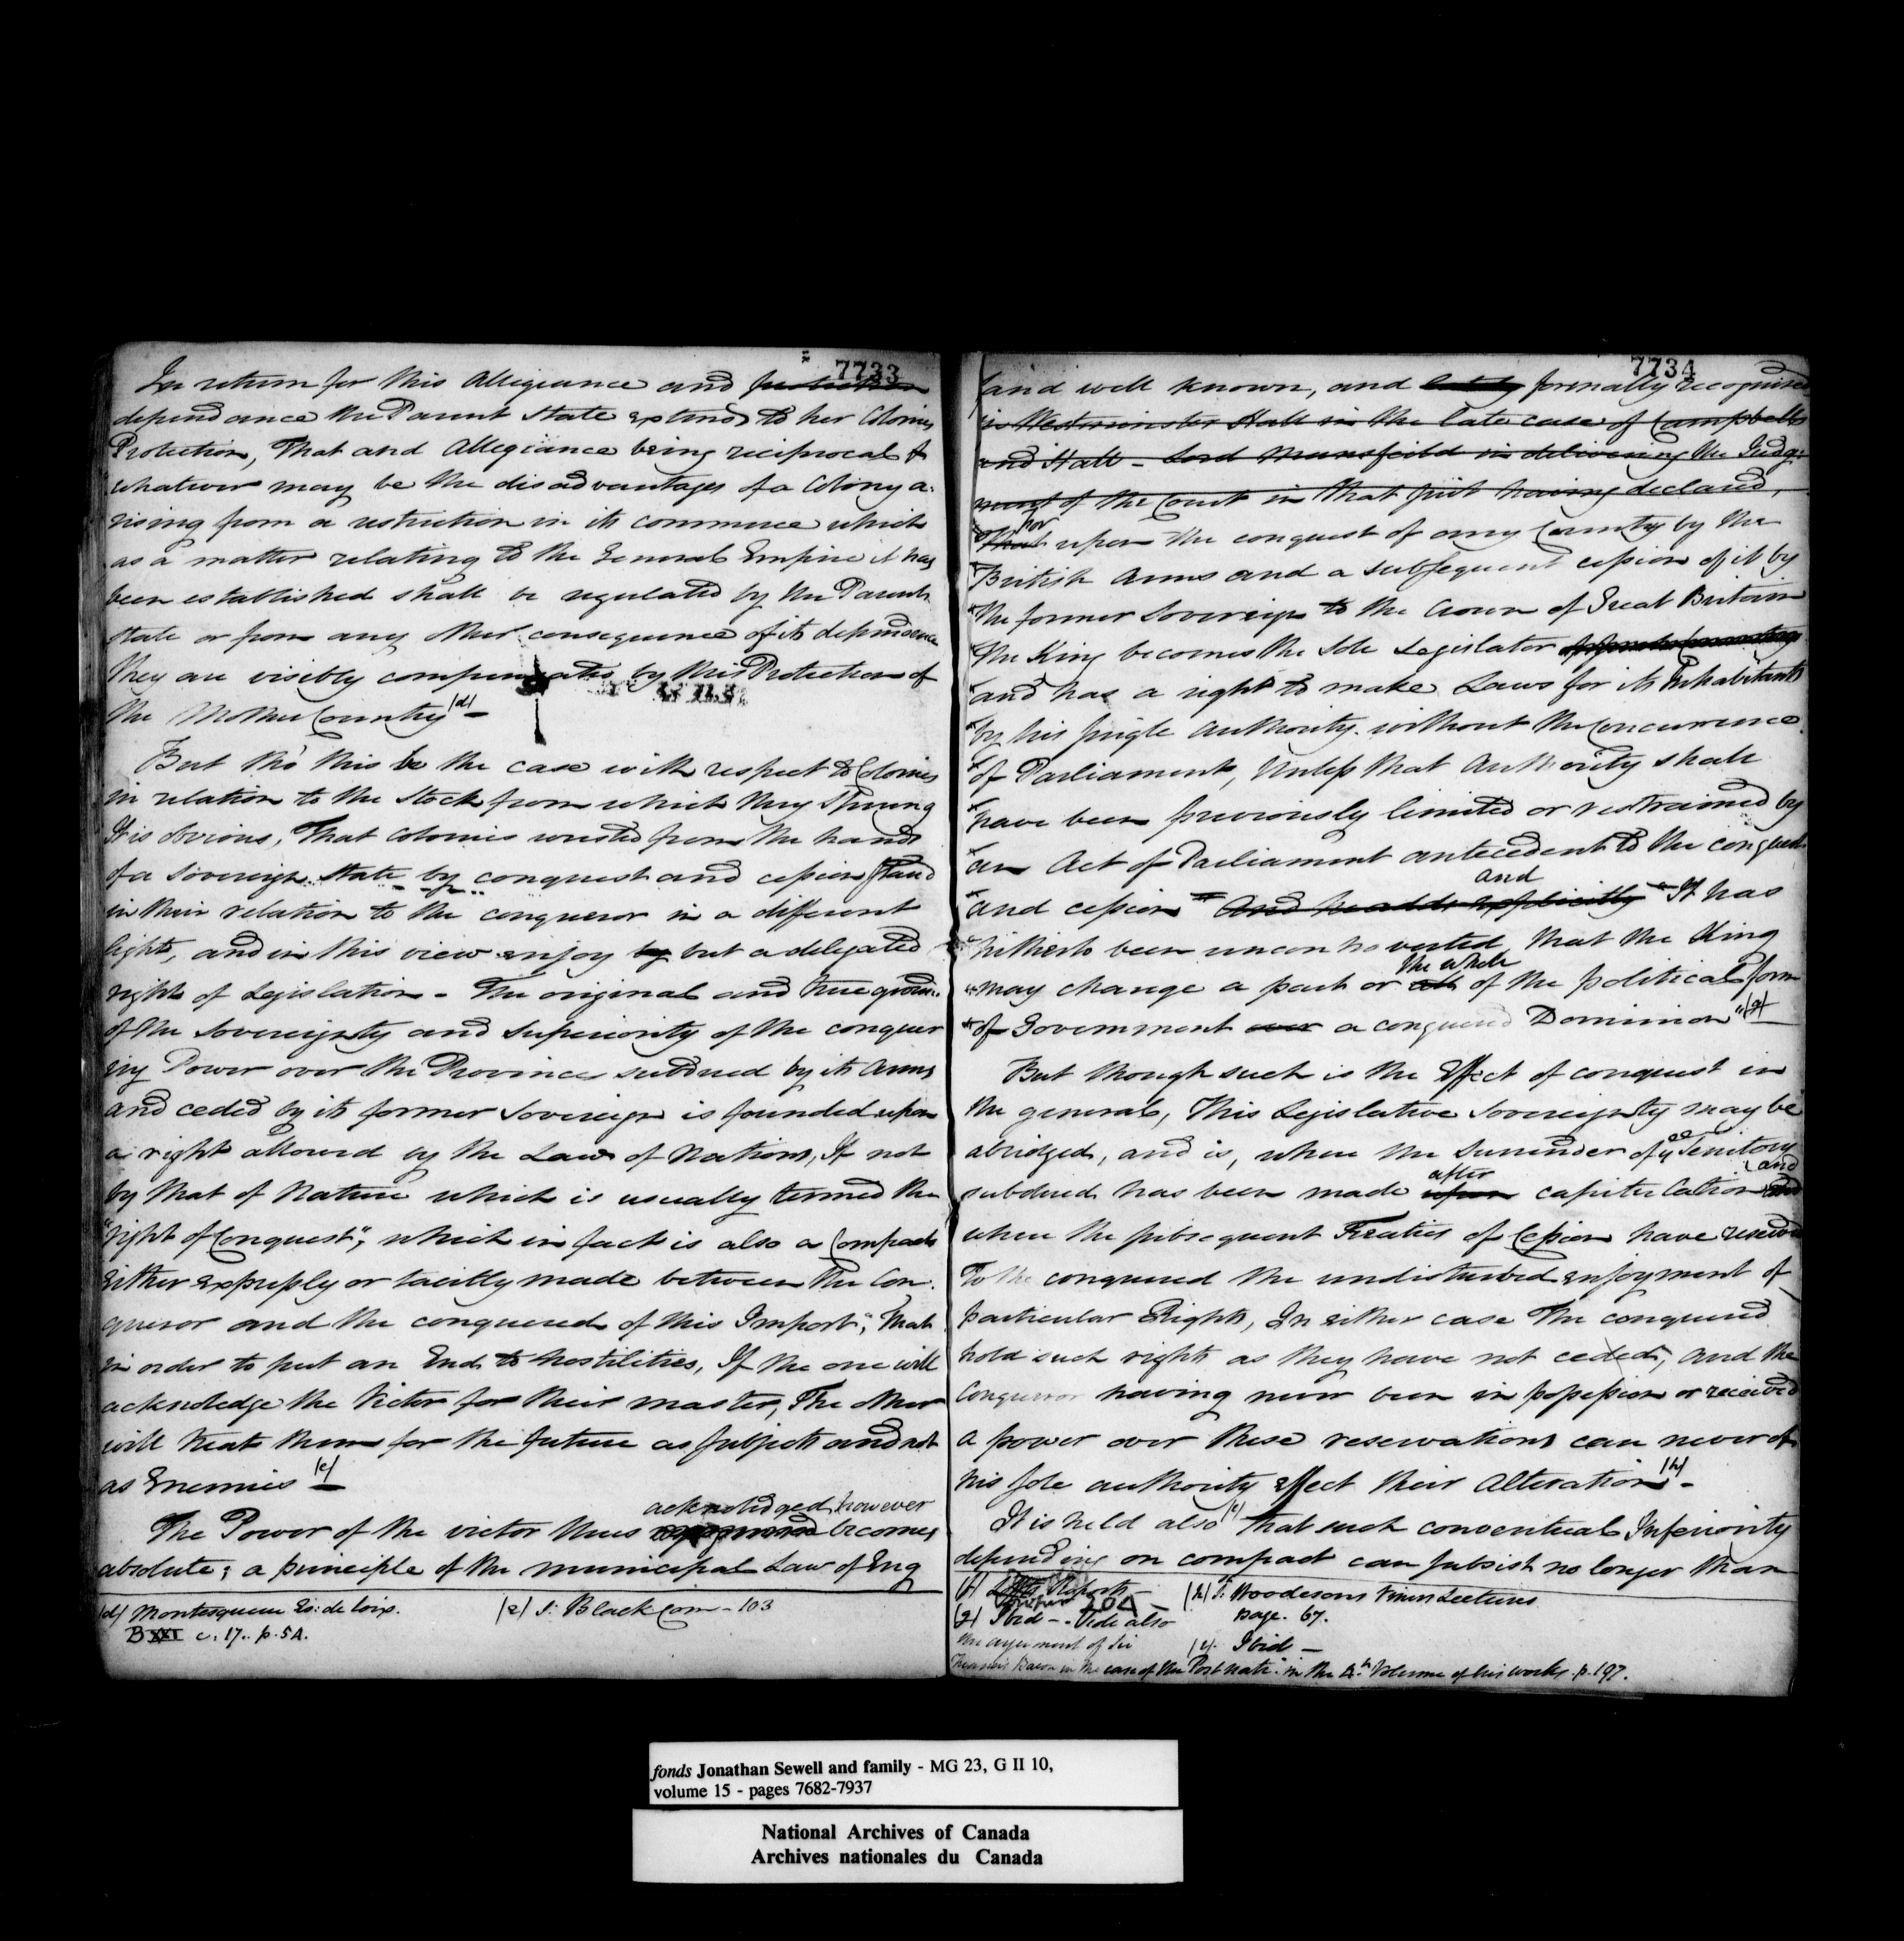 7733
In return for this Allegiance and
dependance the Parent State extends to her Colonies
Protection, That and Allegiance being reciprocal &
whatever may be the disadvantages of a Colony a-
rising from a restriction in its commerce which
as a matter relating to the General Empire it has
been established shall be regulated by the Parent
state or from any other consequence of its dependence
They are visibly compensated by this Protection of
the Mother Country (d) –
But tho' this be the case with respect to Colonies
in relation to the Stock from which they Sprung
It is obvious, That Colonies wrested from the hands
of a Sovereign State by conquest and cession stand
in their relation to the conqueror in a different
light, and in this view enjoy by but a delegated
right of Legislation – The original and true ground
of the Sovereignty and Superiority of the conquer
ing Power over the Province subdued by its arms
and ceded by its former Sovereign is founded upon
a right allowed by the Law of Nations, If not
by that of Nature which is usually termed the
"right of Conquest"; which in fact is also a Compact
Either expressly or tacitly made between the Con-
queror and the conquered of this Import, "That
in order to put an End to hostilities, If the one will
acknoledge the Victor for their master, The other
will treat them for the future as subjects and not
as Enemies (e) –
acknoledged, however
The Power of the victor thus becomes
absolute; a principle of the municipal Law of Eng
(d) Montesquieu Es: de Loix.
B XXI c. 17.. p. 54.
(e) 1: Black Com – 103
7734
land well known, and lately formally recognised
in Westminster Hall in the late case of Campbell
and Hall – Lord Mansfeild in delivering the Judge-
ment of the Court in that suit having declared,
for
That upon the conquest of any Country by the
British Arms and a subsequent cession of it by
the former Sovereign to the Crown of Great Britain
the King becomes the Sole Legislator
and has a right to make Laws for its Inhabitants
by his single Authority without the Concurrence
of Parliament, Unless that Authority shall
have been previously limited or restrained by
an Act of Parliament antecedent to the conquest
and
and cession " And he adds explicitly " It has
hitherto been uncontroverted, that the King
the whole
"may change a part or all of the political form
"of Government over a conquered Dominion" (g)
But though such is the Effect of conquest in
the general, This Legislative Sovereignty may be
abridged, and is, when the Surrender of a Territory
after and
subdued has been made upon capitulation and
when the subsequent Treaties of Cession have reserved
To the conquered the undisturbed enjoyment of
particular Rights, In either case The conquered
hold such rights as they have not ceded, and the
Conqueror having never been in possession or received
a power over these reservations can never of
his sole authority effect their Alteration (h) –
It is held also (i) That such conventional Inferiority
depending on compact can subsist no longer than
(f) Lofts Reports –
204 –
(g) Ibid – . Vide also
the argument of Sir
Francis Bacon in the case of the Post nati" in the 4th Volume of his works p. 197.
(h) 1: Woodesons Viners Lectures
page. 67.
(i) Ibid –
fonds Jonathan Sewell and family - MG 23, G II 10,
volume 15 - pages 7682-7937
National Archives of Canada
Archives nationales du Canada